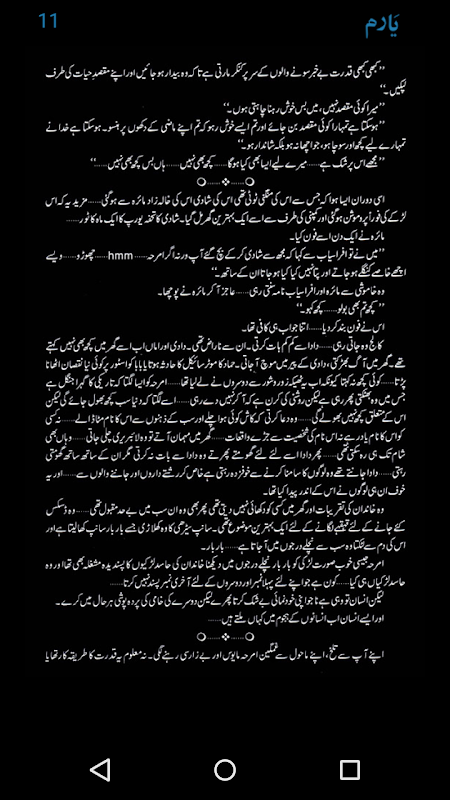 11
یارم
’’کبھی کبھی قدرت بے خبر سونے والوں کے سر پر کنکر مارتی ہے تاکہ وہ بیدار ہو جائیں اور اپنے مقصدِ حیات کی طرف
لپکیں۔‘‘
’’میرا کوئی مقصد نہیں، میں بس خوش رہنا چاہتی ہوں۔‘‘
’’ہو سکتا ہے تمہارا کوئی مقصد بن جائے اور تم ایسے خوش رہو کہ تم اپنے ماضی کے دکھوں پر ہنسو۔ ہو سکتا ہے خدا نے
تمہارے لیے کچھ اور سوچا ہو، جو اچھا نہ ہو بلکہ شاندار ہو۔‘‘
’’مجھے اس پر شک ہے...... میرے لیے ایسا بھی کیا ہوگا...... کچھ بھی نہیں...... ہاں بس کچھ بھی نہیں......‘‘
اسی دوران ایسا ہوا کہ جس سے اس کی منگنی ٹوٹی تھی اس کی شادی اس کی خالہ زاد مائرہ سے ہو گئی...... مزید یہ کہ اس
لڑکے کی فوراً پروموشن ہو گئی اور کمپنی کی طرف سے اسے ایک بہترین گھر مل گیا۔ شادی کا تحفہ یورپ کا ایک ماہ کا ٹور......
مائرہ نے ایک دن اسے فون کیا۔
’’میں نے تو افراسیاب سے کہا کہ مجھ سے شادی کر کے بچ گئے آپ ورنہ اگر امرحہ...... hmm...... چھوڑو...... ویسے
اچھے خاصے کنگلے ہو جاتے اور پتا نہیں کیا کیا ہو جاتا ان کے ساتھ۔‘‘
وہ خاموشی سے مائرہ اور افراسیاب نامہ سنتی رہی...... عاجز آ کر مائرہ نے پوچھا۔
’’کچھ تم بھی بولو...... کچھ کہو۔‘‘
اس نے فون بند کر دیا...... اتنا جواب ہی کافی تھا۔
کالج وہ جاتی رہی...... دادا سے کم کم بات کرتی۔ ان سے ناراض تھی۔ دادی اور اماں اب اسے گھر میں کچھ بھی نہیں کہتے
تھے۔ گھر میں آگ بھڑکتی، دادی کے پیر میں موچ آ جاتی۔ حماد کا موٹر سائیکل کا حادثہ ہوتا یا بابا کو اسٹور پر کوئی نیا نقصان اٹھانا
پڑتا...... کوئی کچھ نہ کہتا کیونکہ اب یہ ٹھیکہ زور و شور سے دوسروں نے لے لیا تھا...... امرحہ کو ایسا لگتا کہ تاریکی کا گہرا جنگل ہے
جس میں وہ بھٹکتی پھر رہی ہے لیکن روشنی کی کرن ہے کہ آ کر نہیں دے رہی...... اسے لگتا کہ دنیا سب کچھ بھول جائے گی لیکن
اس کے متعلق کچھ نہیں بھولے گی...... وہ دعا کرتی کہ کاش کوئی ہوا چلے اور سب کے ذہنوں سے اس کا نام مٹا ڈالے...... نہ کسی
کو اس کا نام یاد رہے نہ اس نام کی شخصیت سے جڑے واقعات...... گھر میں مہمان آتے تو وہ لائبریری چلی جاتی...... وہاں بھی
شام تک ہی رہ سکتی تھی...... پھر دادا اسے لئے لئے گھومتے پھرتے وہ دادا سے بات نہ کرتی مگر ان کے ساتھ ساتھ گھومتی
رہتی...... دادا جانتے تھے وہ لوگوں کا سامنا کرنے سے خوفزدہ رہتی ہے خاص کر رشتے داروں اور جاننے والوں سے...... اور یہ
خوف ان ہی لوگوں نے اس کے اندر پیدا کیا تھا۔
وہ خاندان کی تقریبات اور گھر میں کسی کو دکھائی نہیں دیتی تھی پھر بھی وہ ان سب میں بے حد مقبول تھی...... وہ ڈسکس
کئے جانے کے لئے قہقہے لگانے کے لئے ایک بہترین موضوع تھی۔ سانپ سیڑھی کا وہ کھلاڑی جسے بار بار سانپ کھا لیتا ہے اور
اس کی دم سے لٹکتا وہ سب سے نچلے درجوں میں آ جاتا ہے...... بار بار۔
امرحہ جیسی خوب صورت لڑکی کو بار بار نچلے درجوں میں دیکھنا خاندان کی حاسد لڑکیوں کا پسندیدہ مشغلہ بھی تھا اور وہ
حاسد لڑکیاں ہی کیا...... کون ہے جو اپنے لئے پہلا نمبر اور دوسروں کے لئے آخری نمبر پسند نہیں کرتا......
لیکن انسان تو وہی ہے نا جو اپنی خود نمائی بے شک کرتا پھرے لیکن دوسرے کی خامی کی پردہ پوشی ہر حال میں کرے۔
اور ایسے انسان اب انسانوں کے ہجوم میں کہاں ملتے ہیں......
اپنے آپ سے تلخ، اپنے ماحول سے غمگین امرحہ مایوس اور بے زار سی رہنے لگی۔ نہ معلوم یہ قدرت کا طریقہ کار تھا یا